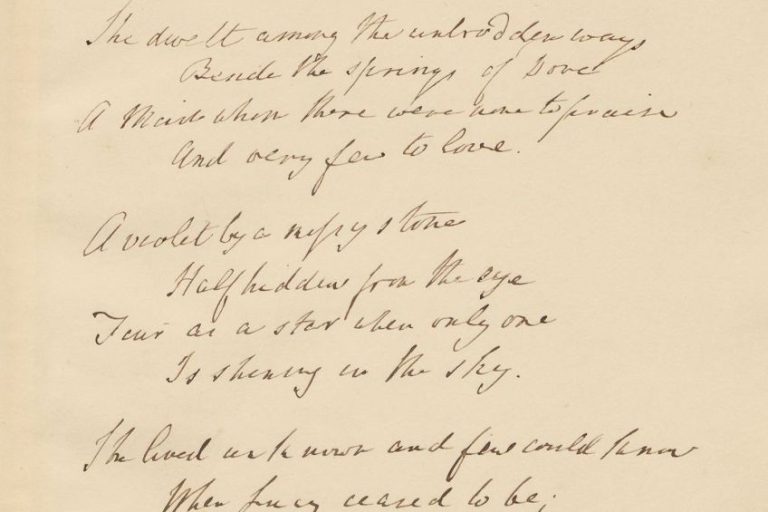 She dwelt among the untrodden ways
Beside the springs of Dove
A Maid whom there were none to praise
And very few to love.
A violet by a mossy stone
Half hidden from the eye
Fair as a star when only one
Is shining in the sky.
She lived unknown and few could know
When Lucy ceased to be;